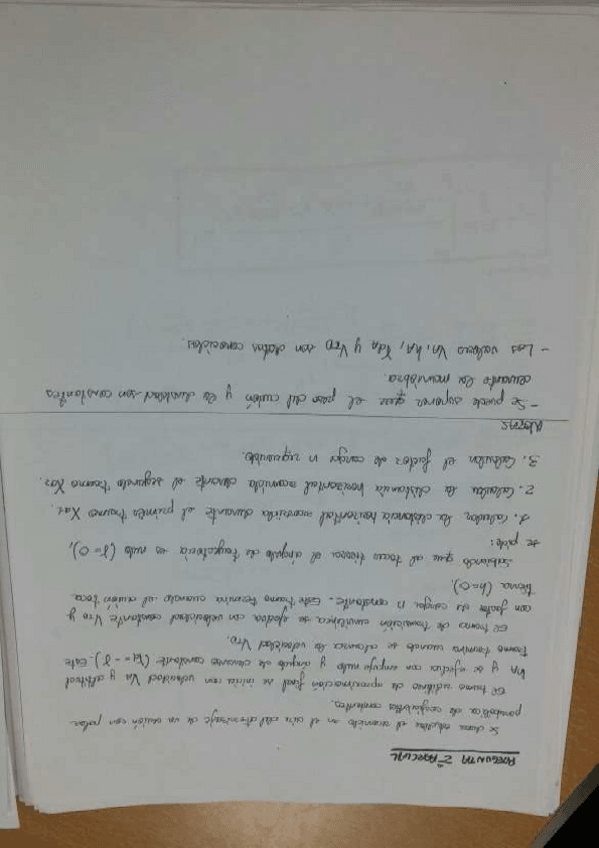 PREGUNTA 2º PARCIAL
Se desea estudiar el recorrido en el aire del aterrizaje de un avión con polar
parabólica de coeficientes constantes.
El tramo rectilíneo de aproximación final se inicia con velocidad VA y altitud
hA y se efectúa con empuje nulo y ángulo de descenso constante (γd = -γ). Este
tramo termina cuando se alcanza la velocidad VTD.
El tramo de transición curvilínea se efectúa con velocidad constante VTD y
con factor de carga n constante. Este tramo termina cuando el avión toca
tierra (h=0).
Sabiendo que al tocar tierra el ángulo de trayectoria es nulo (γ=0),
se pide:
1. Calcular la distancia horizontal recorrida durante el primer tramo
2. Calcular la distancia horizontal recorrida durante el segundo tramo
3. Calcular el factor de carga n requerido.
NOTAS
- Se puede suponer que el peso del avión y la densidad son constantes
durante la maniobra.
- Los valores VA, hA, γdA y VTD son datos conocidos.